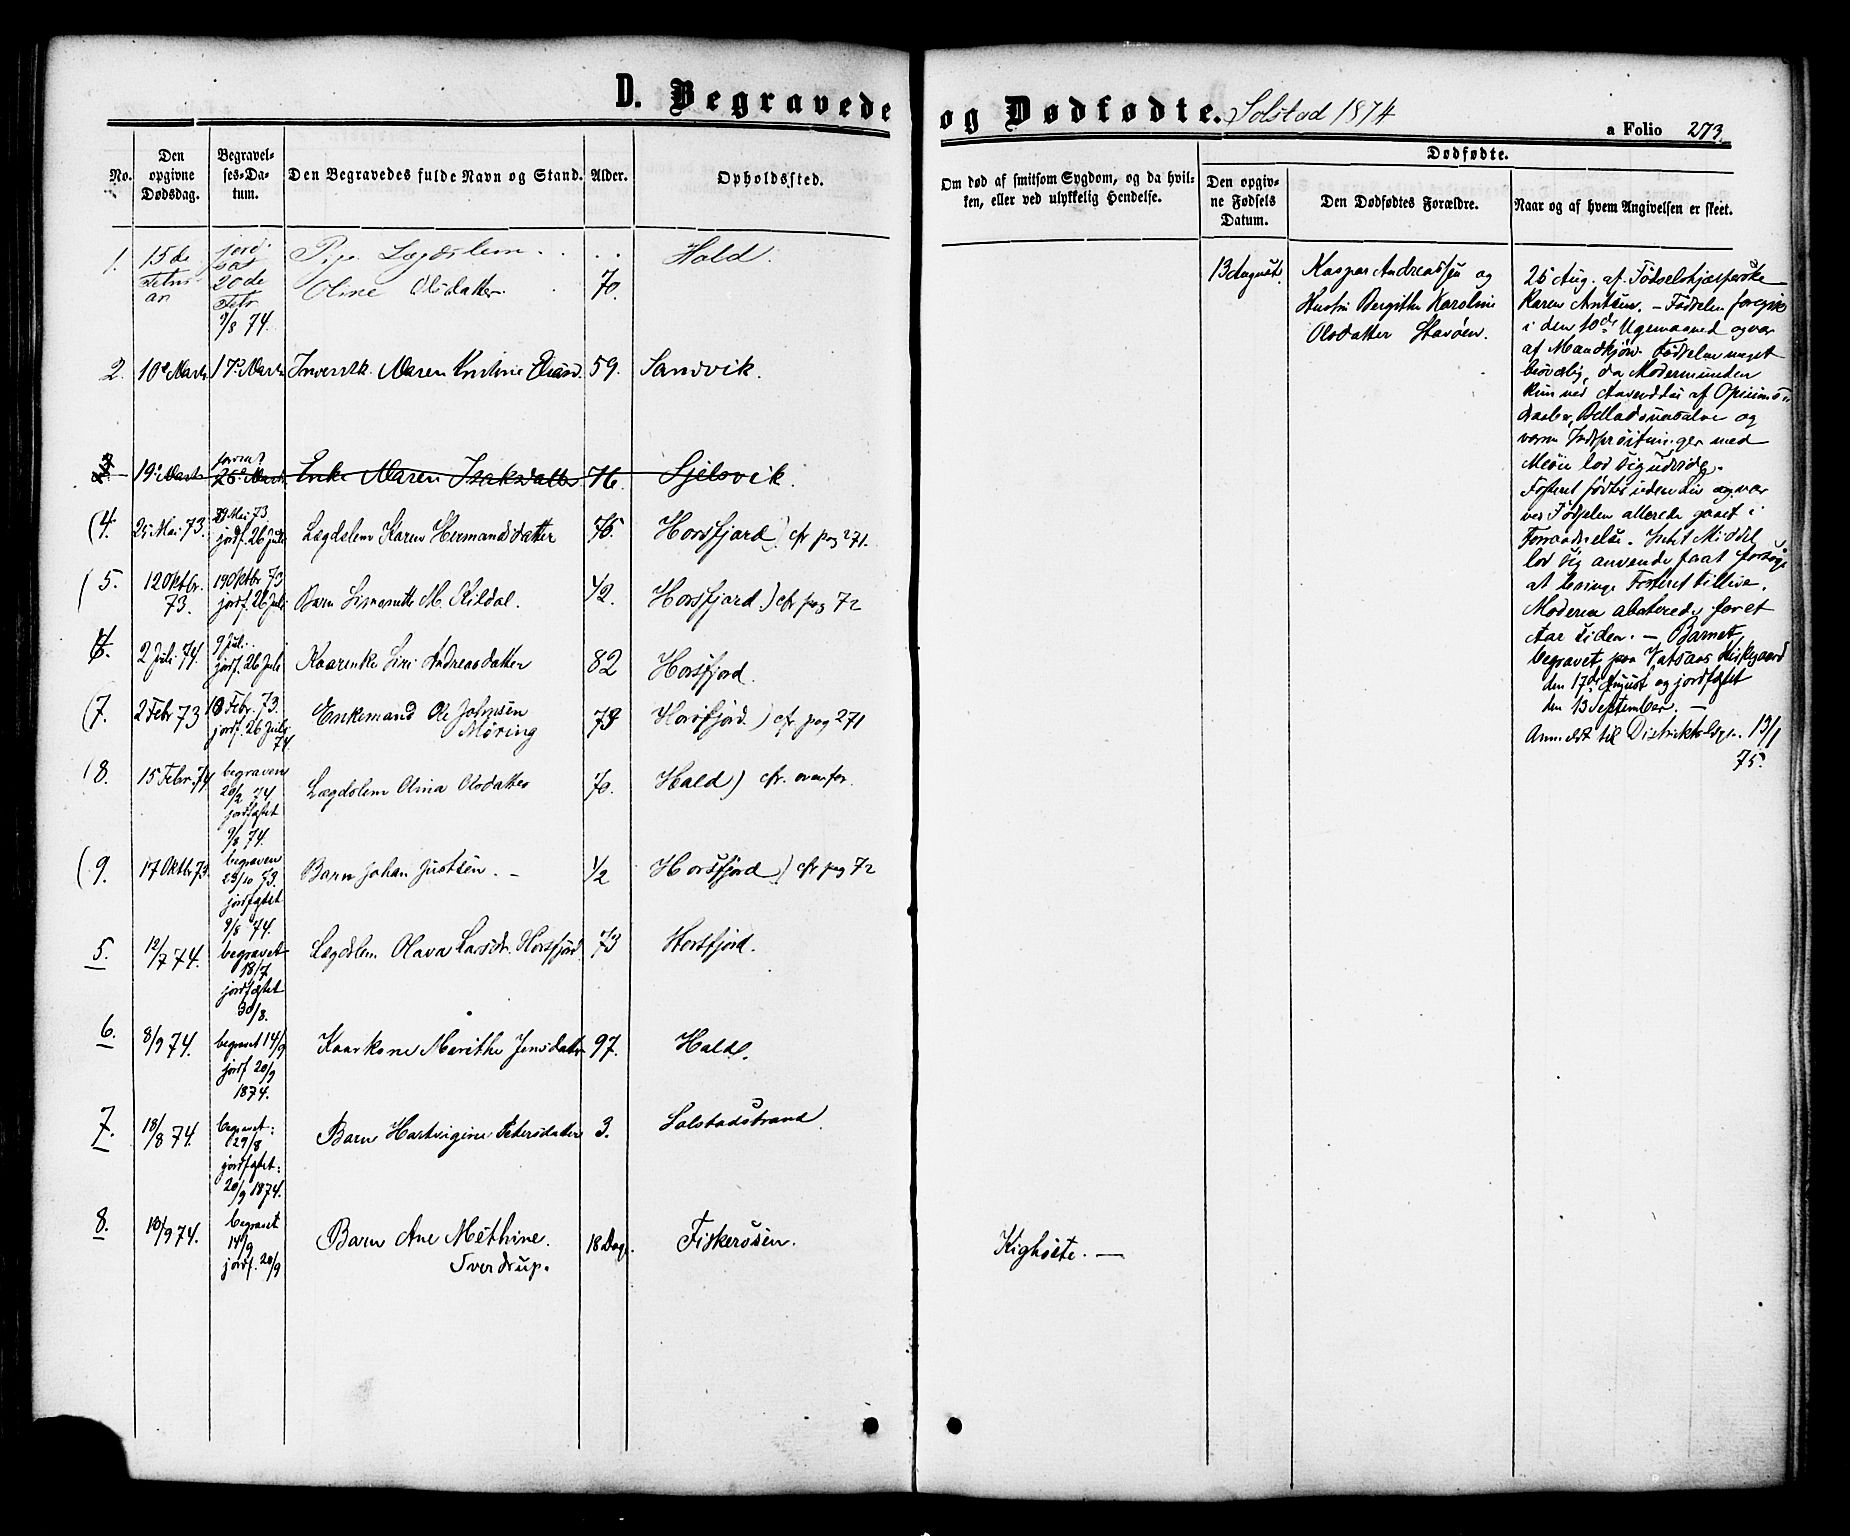 D. Begravede og Dødfødte. Solstad 1874
a Folio 273.
No.
Den opgivne Dødsdag.
Begravelses-Datum.
Den Begravedes fulde Navn og Stand.
Alder.
Opholdssted.
Om død af smitsom Sygdom, og da hvilken, eller ved ulykkelig Hendelse.
Dødfødte.
Den opgivne Fødsels Datum.
Den Dødfødtes Forældre.
Naar og af hvem Angivelsen er skeet.
1. 15de Februar jordfæs 20de Febr 9/8 74. Pige Lægdslem Oline Olsdatter. 70. Hald.
2. 10de Marts 17de Marts Maren Kristine 59. Sandvik.
3 19de Marts 26de Marts Enke Maren Isaksdatter 76. Sjelsvik.
(4. 25 Mai 73. 29 Mai 73 jordf. 26 Juli Lægdslem Karen Hermansdatter 75. Horsfjord) cfr pag 271.
(5. 12 Oktbr. 73. 19 Oktbr 73 jordf. 26 Juli Barn M. Kildal. 1/2. Horsfjord) cfr pag 72
4. 2 Juli 74. 9 Juli. jordf. 26 Juli Kaarenke Siri Andreasdatter 82 Horsfjord.
(7. 2 Febr 73 Febr. 73. jordf. 26 Juli 74 Enkemand Ole Johnsen Møring 73 Horsfjord.) cfr. pag 271
(8. 15 Febr. 74 begraven 20/2 74 jordfæstet 9/8 74. Lægdslem Olina Olsdatter 70. Hald) cfr. ovenfor.
(9. 17 Oktbr 73. begraven 23/10 73. jordfæstet 9/8 74. Barn Johan Justsen. – 1/2 Horsfjord) cfr pag 72
5. 12/7 74. begravet 18/7 jordfæstet 30/8. Lægdslem Olava Larsdr. Horsfjord 73 Horsfjord.
6. 8/9 74. begravet 14/9 jordf 20/9 1874. Kaarkone Marithe Jensdatter 97. Hald.
7. 18/8 74. begravet: 29/8 jordfæstet: 20/9 1874. Barn Hartvigine Petersdatter 3. Solstadstrand.
8. 10/9 74. begravet 14/9 jordf. 20/9 Barn Ane Methine Sverdrup. 18 Dage. Fiskerosen. Kighoste. —
13 August. Kaspar Andreassen og
Hustru Bergithe Karoline
Olsdatter Stavøen.
25 Aug. af Fødselshjælperske
Karen Antsen. – Fødselen foregik
i den 10de Ugemaaned og var
af Mandkjøn. Fødselen meget
besværlig, da Modermunden
kun ved Anvendelse af Opiums-
draaber, Belladonnasalve og
varme Indsprøitninger med
lod sig udvide.
Fosteret fødtes uden Liv og var
ved Fødselen allerede gaaet i
Forraadnelse. Intet Middel
lod sig anvende paa at forsøge
at bringe Fosteret tillive.
Moderen aborterede for et
Aar siden. – Barnet
begravet paa Vatsaas Kirkegaard
den 17de August og jordfæstet
den 13 September. –
Anmeldt til Distriktslægen 13/1
75.